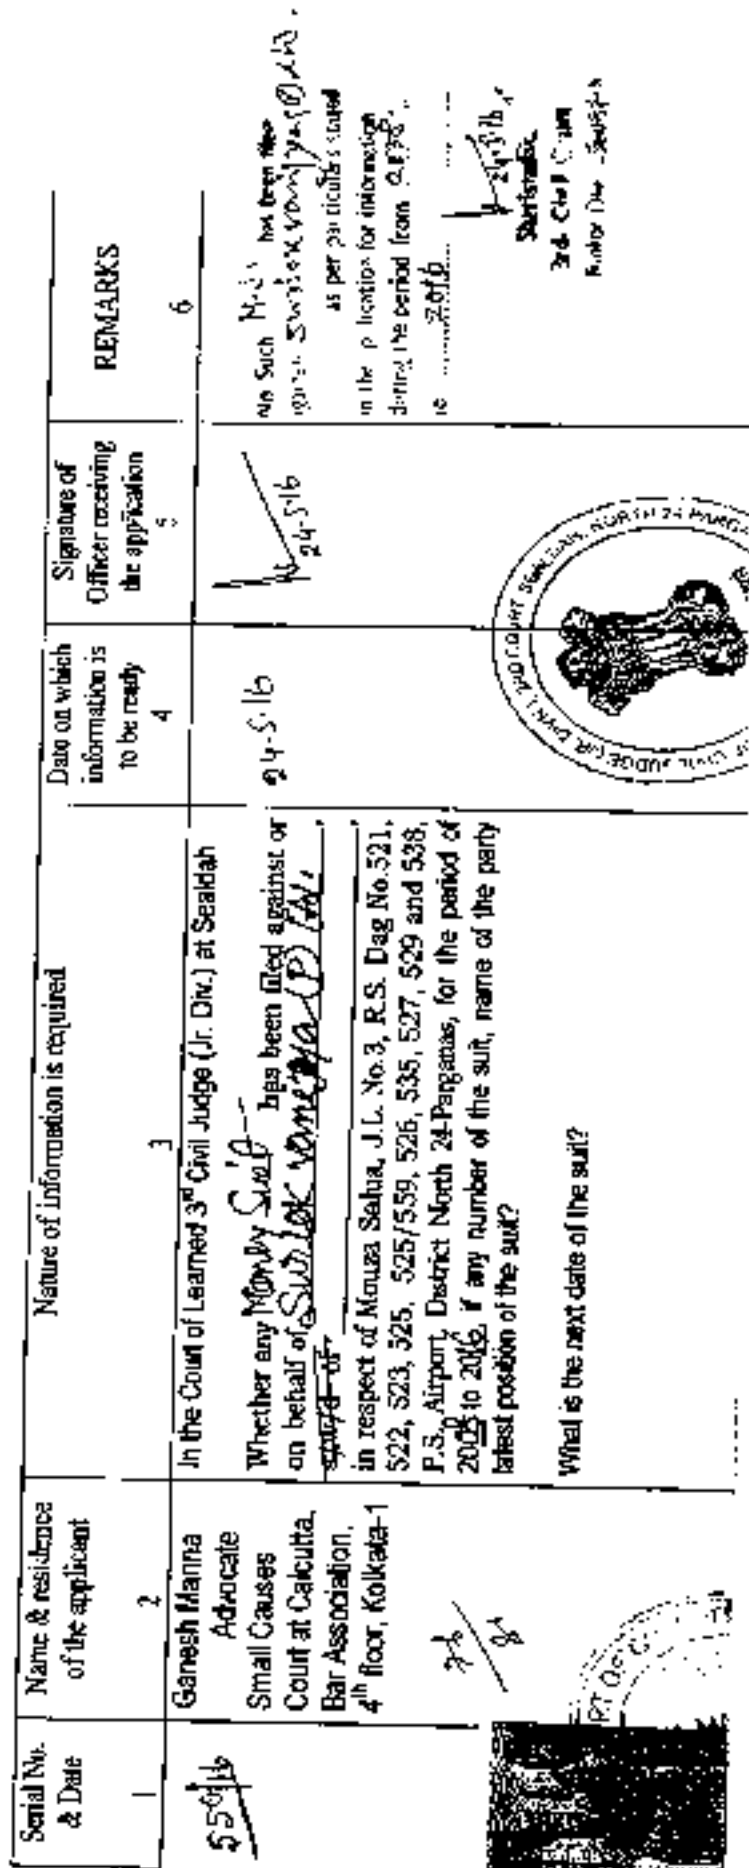 Serial No.
& Date
1
Name & residence
of the applicant
2
Nature of information is required
3
Date on which
information is
to be ready
4
Signature of
Officer receiving
the application
5
REMARKS
6
Ganesh Manna
Advocate
Small Causes
Court at Calcutta,
Bar Association,
4th floor, Kolkata-1
In the Court of Learned 3rd Civil Judge (Jr. Div.) at Sealdah
Whether any Money Suit has been filed against or
on behalf of (P)
in respect of Mouza Salua, J.L. No.3, R.S. Dag No.521,
522, 523, 525, 525/559, 526, 535, 527, 529 and 538,
P.S. Airport, District North 24-Parganas, for the period of
to 2016, if any number of the suit, name of the party
latest position of the suit?
What is the next date of the suit?
24-5-16
24-5-16
No Such has been filed
as per particulars stated
in the application for information
during the period from
to 2016
24-5-16
Sheristadar
3rd Civil Court
CIVIL JUDGE (JR. DIVN.) COURT SEALDAH, NORTH 24 PARGA
RT OF